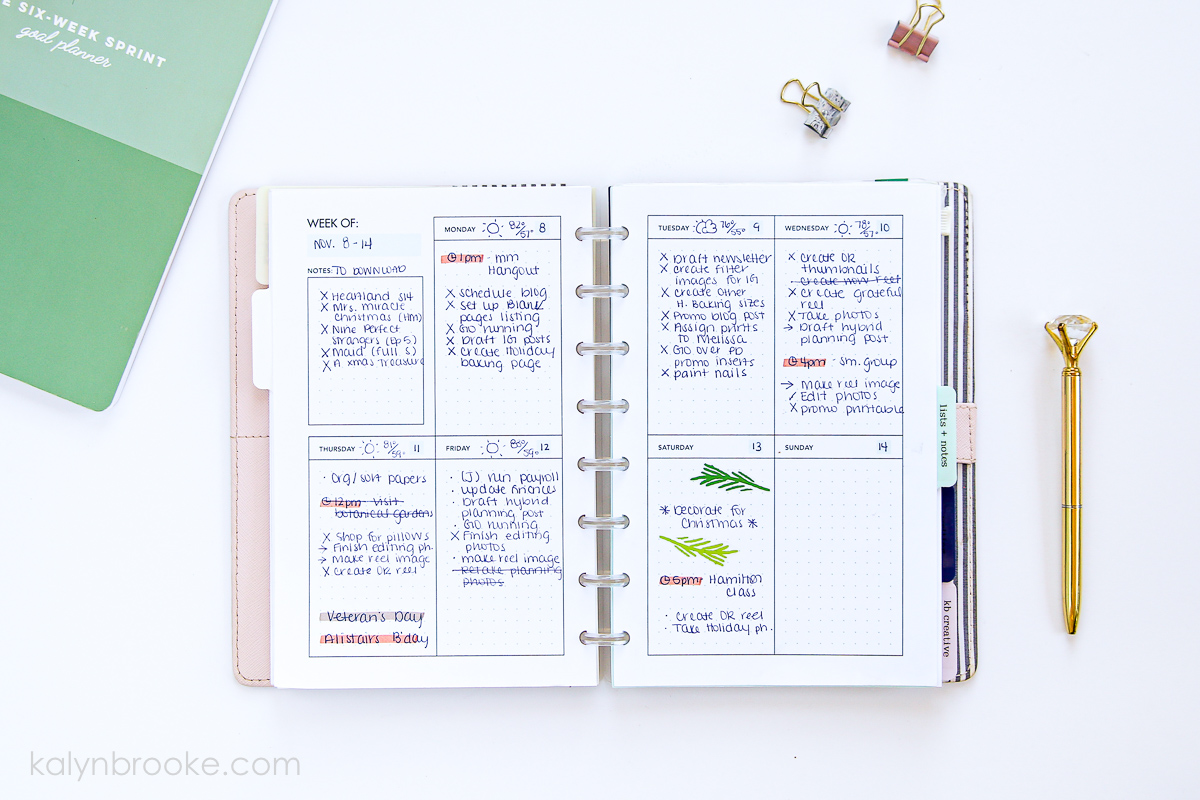 THE SIX-WEEK SPRINT
goal planner
WEEK OF:
NOV. 8-14
NOTES: TO DOWNLOAD
X Heartland S14
X Mrs. miracle
Christmas (HM)
X Nine Perfect
Strangers (Ep 5)
X Maid (full S)
X A Xmas Treasure
MONDAY 82°/57° 8
1pm - mm
Hangout
X schedule blog
X set up Blank
pages listing
X GO running
X Draft IG posts
X create Holiday
baking page
THURSDAY 81°/59° 11
· Org/sort papers
12pm - visit
botanical gardens
X Shop for pillows
→ Finish editing ph.
→ Make reel image
X create OR reel
Veteran's Day
Alistairs B'day
FRIDAY 12
· (J) run payroll
· update finances
· Draft hybrid
planning post
· GO running
X Finish editing
photos
· make reel image
· Retake planning
photos
TUESDAY 76°/55° 9
X Draft newsletter
X create filter
images for IG
X create other
H. Baking sizes
X Promo blog post
X Assign prints
to Melissa
X GO over PD
promo inserts
X paint nails
WEDNESDAY 78°/57° 10
X create OR
thumbnails
· create now reel
X create grateful
reel
X Take photos
→ Draft hybrid
planning post
4pm - sm. group
→ Make reel image
/ Edit photos
X promo printable
SATURDAY 13
* Decorate for
Christmas *
5pm Hamilton
class
· create OR reel
· Take Holiday ph.
SUNDAY 14
lists + notes
kb creative
kalynbrooke.com